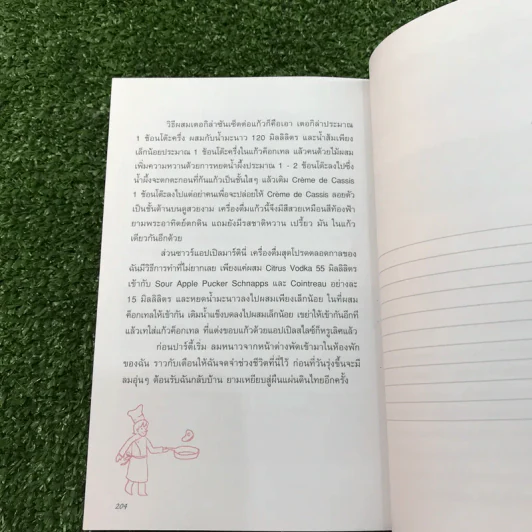 วิธีผสมเตอกีล่าซันเซ็ตต่อแก้วก็คือเอา เตอกีล่าประมาณ
1 ช้อนโต๊ะครึ่ง ผสมกับน้ำมะนาว 120 มิลลิลิตร และน้ำส้มเพียง
เล็กน้อยประมาณ 1 ช้อนโต๊ะครึ่งในแก้วค็อกเทล แล้วคนด้วยไม้ผสม
เพิ่มความหวานด้วยการหยดน้ำผึ้งประมาณ 1 - 2 ช้อนโต๊ะลงไปซึ่ง
น้ำผึ้งจะตกตะกอนที่ก้นแก้วเป็นชั้นใสๆ แล้วเติม Crème de Cassis
1 ช้อนโต๊ะลงไปแต่อย่าคนเพื่อจะปล่อยให้ Crème de Cassis ลอยตัว
เป็นชั้นด้านบนดูสวยงาม เครื่องดื่มแก้วนี้จึงมีสีสวยเหมือนสีท้องฟ้า
ยามพระอาทิตย์ตกดิน แถมยังมีรสชาติหวาน เปรี้ยว มัน ในแก้ว
เดียวกันอีกด้วย
ส่วนซาวร์แอปเปิลมาร์ตินี่ เครื่องดื่มสุดโปรดตลอดกาลของ
ฉันมีวิธีการทำที่ไม่ยากเลย เพียงแค่ผสม Citrus Vodka 55 มิลลิลิตร
เข้ากับ Sour Apple Pucker Schnapps และ Cointreau อย่างละ
15 มิลลิลิตร และหยดน้ำมะนาวลงไปผสมเพียงเล็กน้อย ในที่ผสม
ค็อกเทลให้เข้ากัน เติมน้ำแข็งบดลงไปผสมเล็กน้อย เขย่าให้เข้ากันอีกที
แล้วเทใส่แก้วค็อกเทล ที่แต่งขอบแก้วด้วยแอปเปิลสไลซ์ก็หรูเลิศแล้ว
ก่อนปาร์ตี้เริ่ม ลมหนาวจากหน้าต่างพัดเข้ามาในห้องพัก
ของฉัน ราวกับเตือนให้ฉันจดจำช่วงชีวิตที่นี่ไว้ ก่อนที่วันรุ่งขึ้นจะมี
ลมอุ่นๆ ต้อนรับฉันกลับบ้าน ยามเหยียบสู่ผืนแผ่นดินไทยอีกครั้ง
204